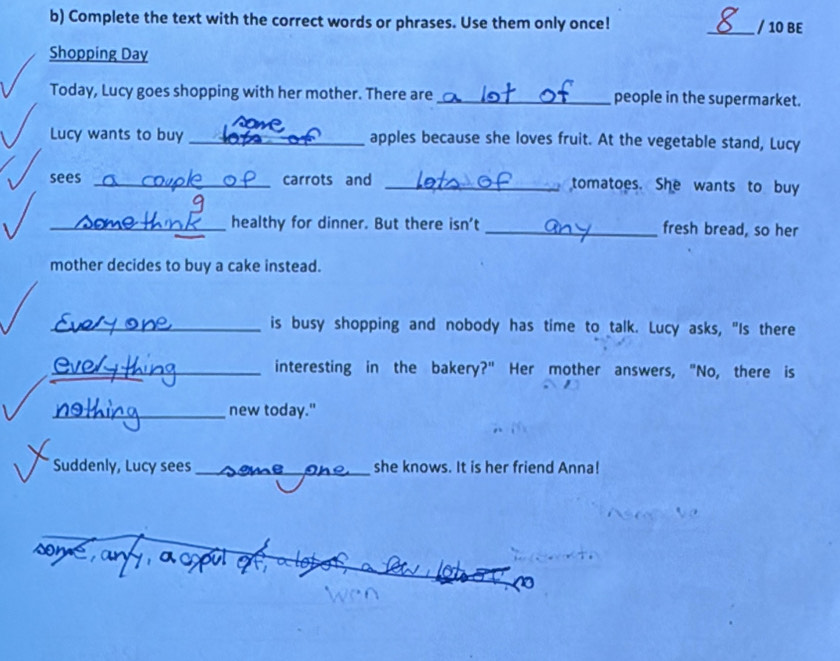 b) Complete the text with the correct words or phrases. Use them only once! 8 / 10 BE
Shopping Day
Today, Lucy goes shopping with her mother. There are a lot of people in the supermarket.
some
Lucy wants to buy lots of apples because she loves fruit. At the vegetable stand, Lucy
sees a couple of carrots and lots of tomatoes. She wants to buy
g
somethink healthy for dinner. But there isn't any fresh bread, so her
mother decides to buy a cake instead.
Everyone is busy shopping and nobody has time to talk. Lucy asks, "Is there
everything interesting in the bakery?" Her mother answers, "No, there is
nothing new today."
Suddenly, Lucy sees some one she knows. It is her friend Anna!
some, any, a copul of, a lot of, a few, lots of, no